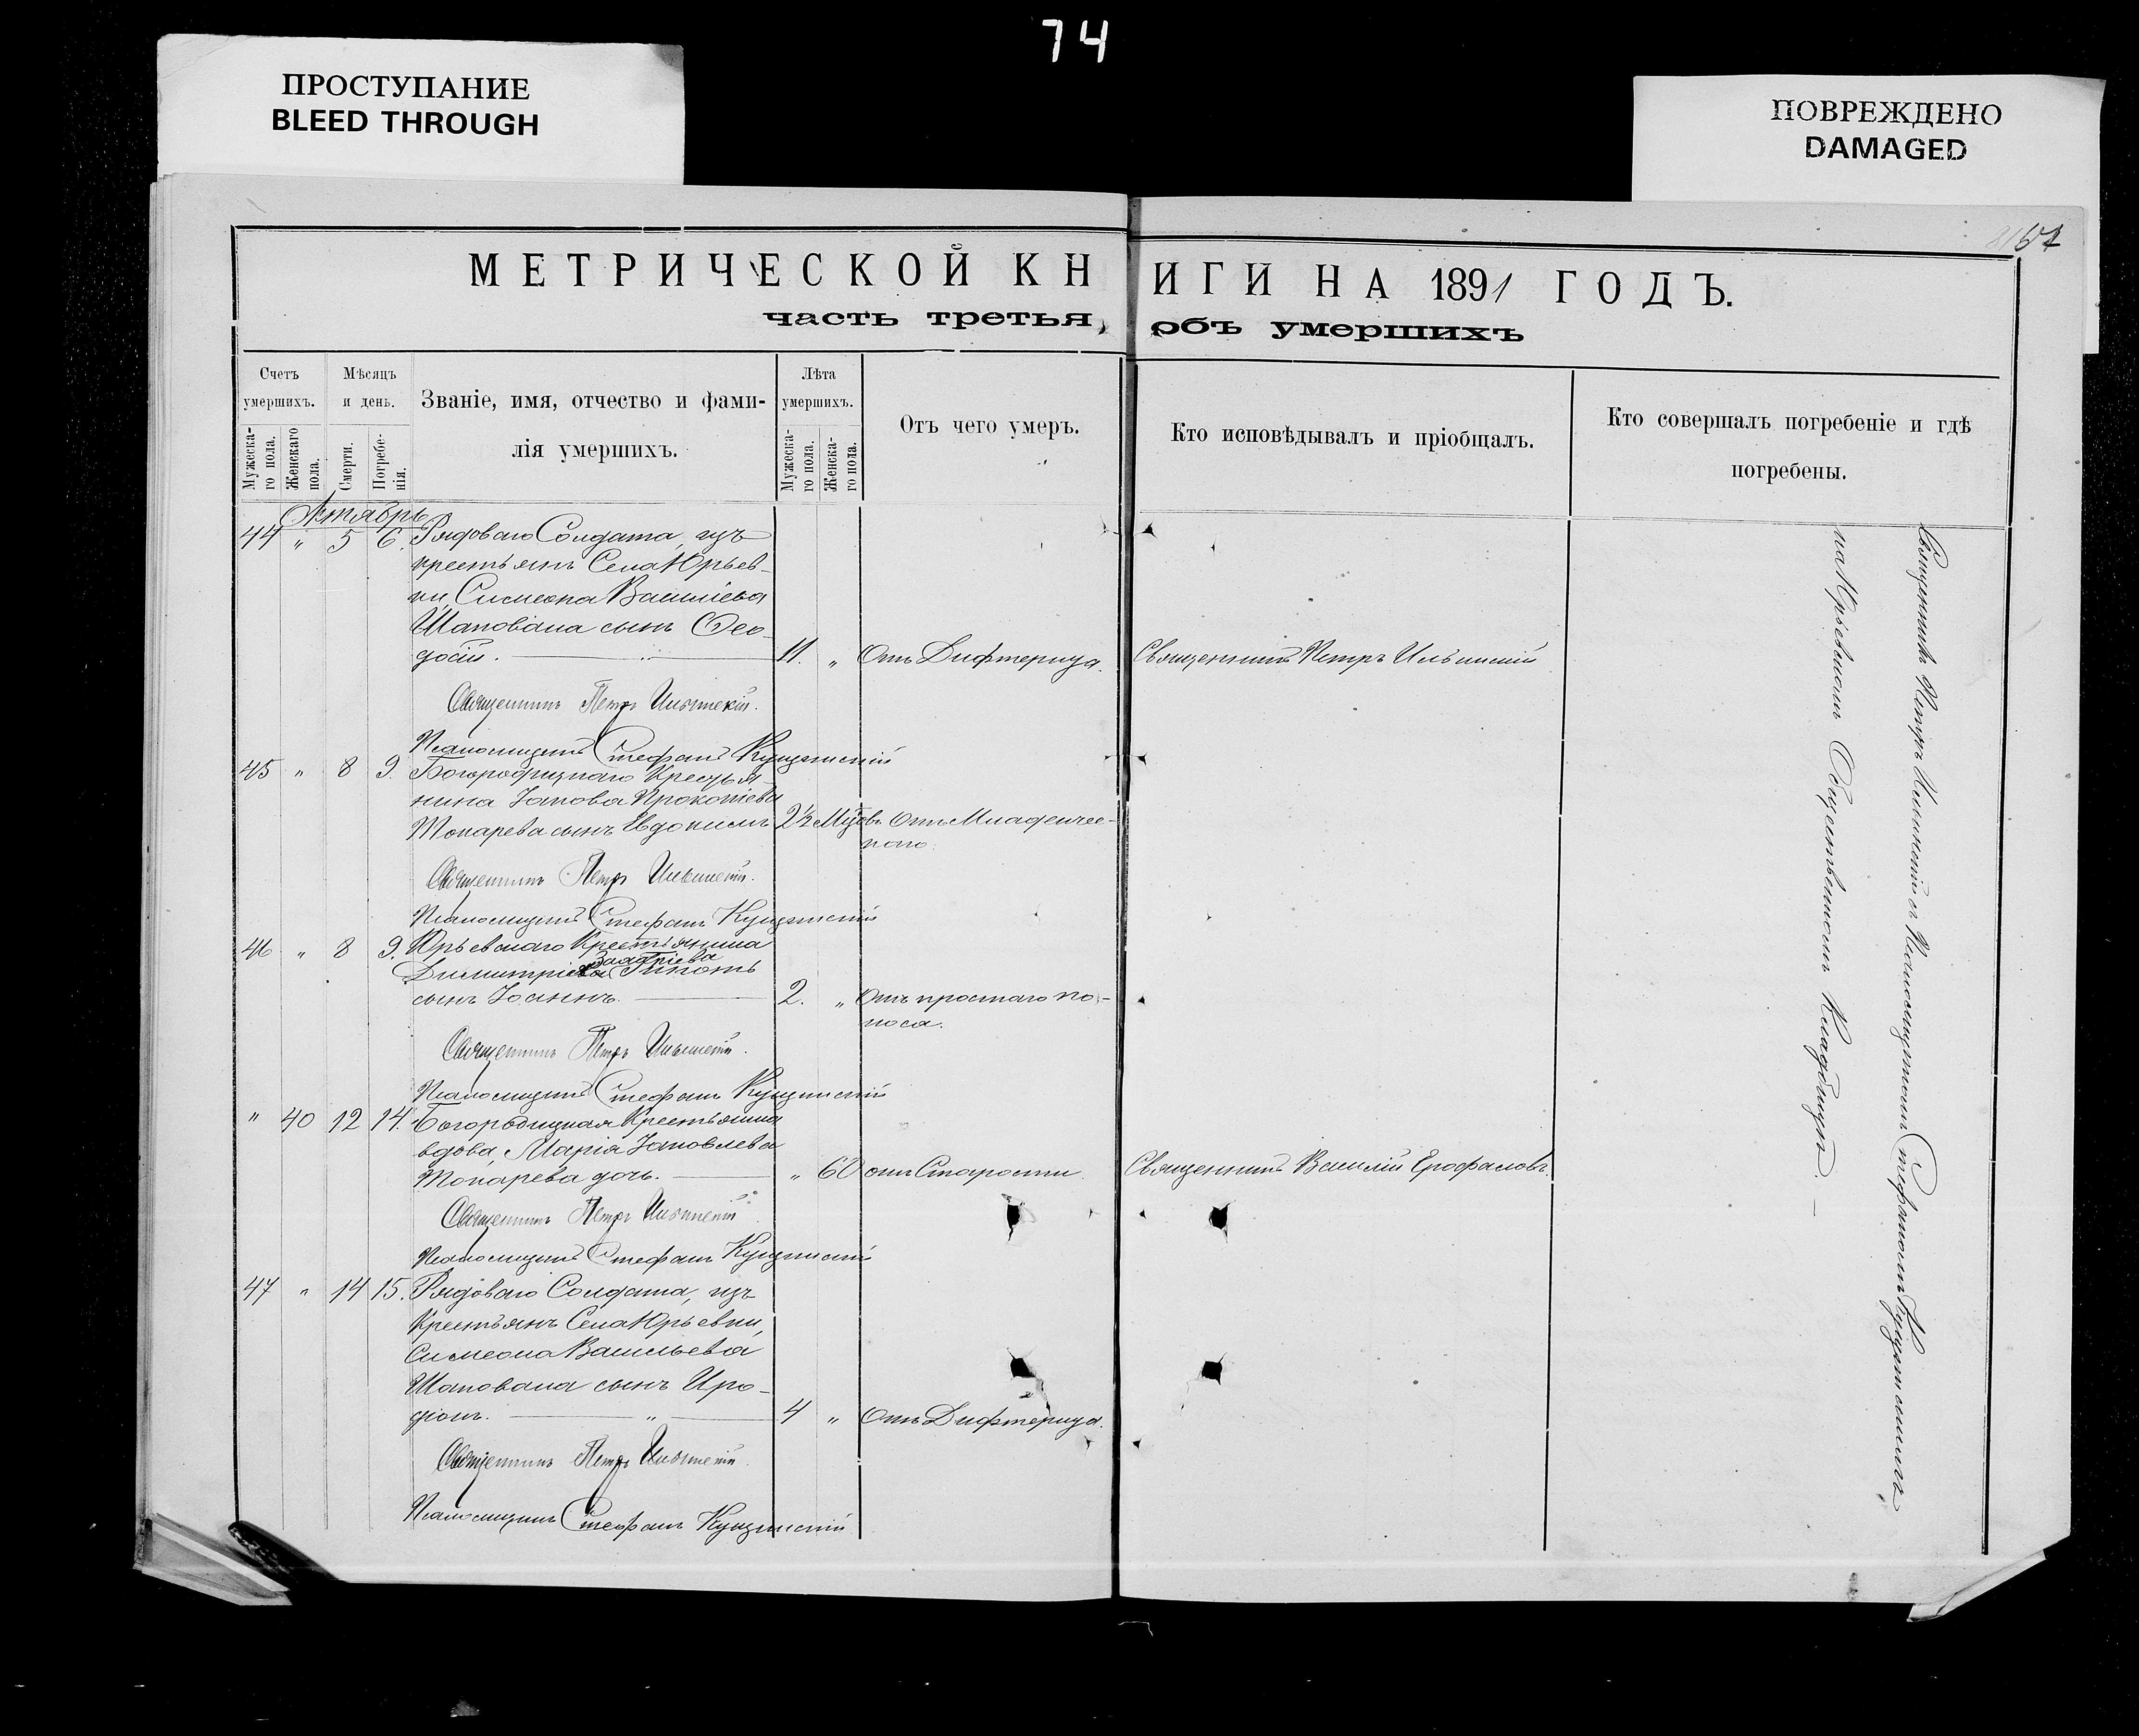 74
ПРОСТУПАНИЕ
BLEED THROUGH
ПОВРЕЖДЕНО
DAMAGED
МЕТРИЧЕСКОЙ КНИГИ НА 1891 ГОДЪ.
часть третья, объ умершихъ
Счетъ умершихъ.
Мужеска-
го пола.
Женскаго
пола.
Мѣсяцъ
и день.
Смерти.
Погребе-
нія.
Званіе, имя, отчество и фами-
лія умершихъ.
Лѣта
умершихъ.
Мужеска-
го пола.
Женска-
го пола.
Отъ чего умеръ.
Кто исповѣдывалъ и пріобщалъ.
Кто совершалъ погребеніе и гдѣ
погребены.
Октябрь
44 " 5 6. Рядоваго Солдата, изъ
крестьянъ Села Юрьев-
ки, Симеона Василіева
Шаповала сынъ Ѳео-
досій. 11. " Отъ Дифтерита. Священникъ Петръ Ильинскій
Священникъ Петръ Ильинскій.
Псаломщикъ Стефанъ
45 " 8 9. Богородицкаго Крестья-
нина Іакова Прокопіева
Токарева сынъ Евдокимъ 2½ Мцовъ Отъ Младенчес-
каго.
Священникъ Петръ Ильинскій.
Псаломщикъ Стефанъ
46 " 8 9. Юрьевскаго Крестьянина
Димитрія
сынъ Іоаннъ. 2. " Отъ простаго по-
носа.
Священникъ Петръ Ильинскій.
Псаломщикъ Стефанъ
" 40 12 14. Богородицкая Крестьянка
вдова, Марія Іаковлева
Токарева дочь. " 60 отъ Старости. Священникъ Василій
Священникъ Петръ Ильинскій
Псаломщикъ Стефанъ
47 " 14 15. Рядоваго Солдата, изъ
Крестьянъ Села Юрьевки,
Симеона Васильева
Шаповала сынъ Иро-
діонъ. " 4 " Отъ Дифтерита.
Священникъ Петръ Ильинскій.
Псаломщикъ Стефанъ
Священникъ Петръ Ильинскій съ Псаломщикомъ Стефаномъ
на Юрьевскомъ Общественномъ Кладбищѣ.